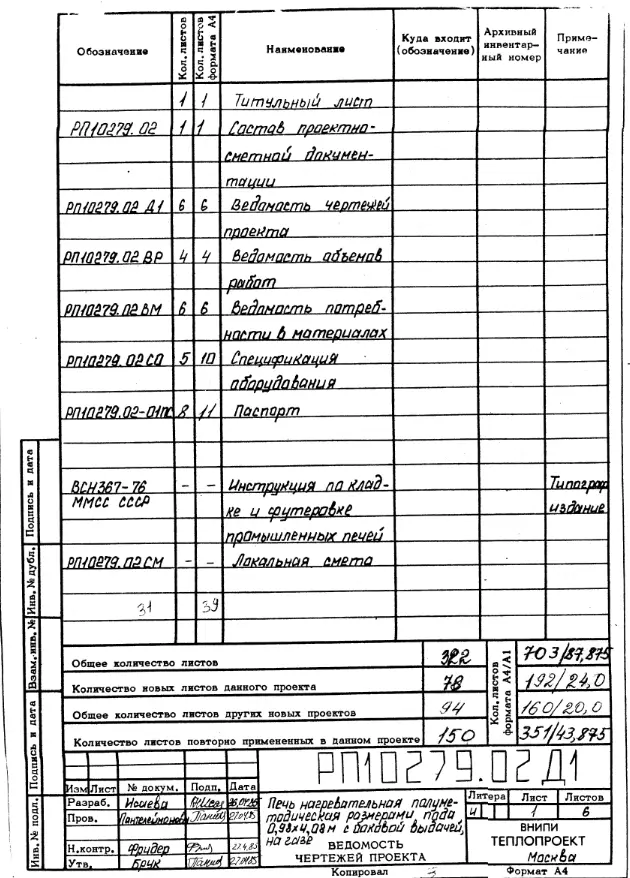 Обозначение Кол. листов Кол. листов формата А4 Наименование Куда входит (обозначение) Архивный инвентарный номер Примечание
1 1 Титульный лист
РП10279.02 1 1 Состав проектно-
сметной докумен-
тации
РП10279.02 Д1 6 6 Ведомость чертежей
проекта
РП10279.02 ВР 4 4 Ведомость объемов
работ
РП10279.02 ВМ 6 6 Ведомость потреб-
ности в материалах
РП10279.02 СО 5 10 Спецификация
оборудования
РП10279.02-01ПС 8 11 Паспорт
ВСН367-76 - - Инструкция по клад- Типограф
ММСС СССР ке и футеровке издание
промышленных печей
РП10279.02 СМ - - Локальная смета
31 39
Общее количество листов 322 703/87,875
Количество новых листов данного проекта 78 192/24,0
Общее количество листов других новых проектов 94 160/20,0
Количество листов повторно примененных в данном проекте 150 351/43,875
Кол. листов формата А4/А1
РП10279.02Д1
Изм Лист № докум. Подп. Дата
Разраб. Исиева
Пров. Пантелеймонова 27.04.85
Н.контр. Фридер 27.4.85
Утв. Брук 27.04.85
Печь нагревательная полуме-
тодическая размерами пода
0,98х4,08 м с боковой выдачей,
на газе
ВЕДОМОСТЬ
ЧЕРТЕЖЕЙ ПРОЕКТА
Литера Лист Листов
И 1 6
ВНИПИ
ТЕПЛОПРОЕКТ
Москва
Копировал Формат А4
Подпись и дата
Инв. № дубл.
Взам. инв. №
Подпись и дата
Инв. № подл.